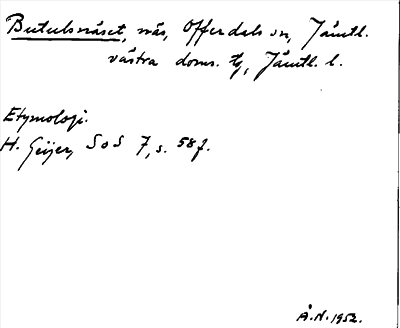 Butulsnäset, näs, Offerdals sn, Jämtl.
västra doms. tg, Jämtl. l.
Etymologi.
H. Geijer, SoS 7, s. 58 f.
Å.N. 1952.